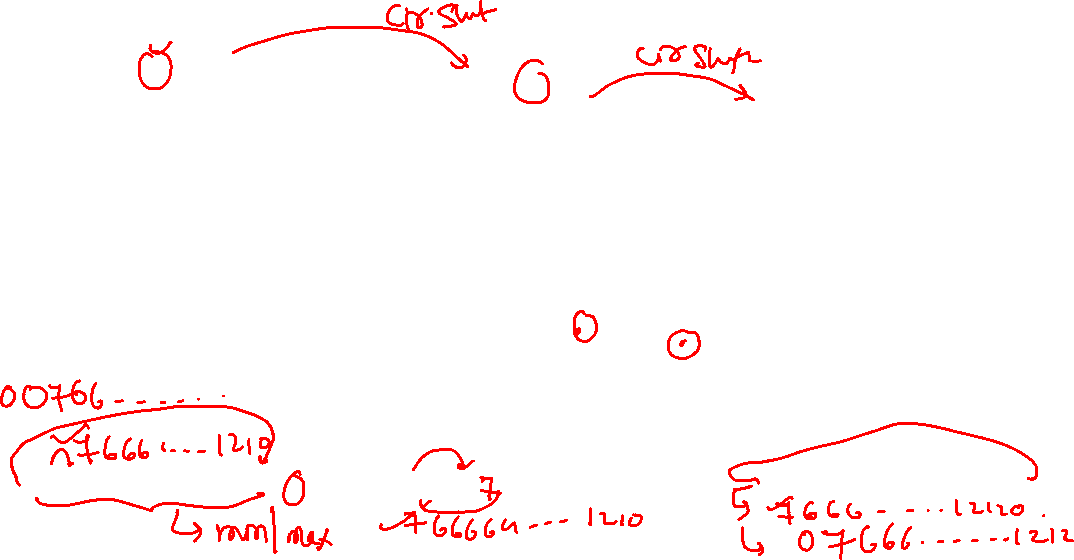 cir. Shift
0
0
cir Shift
0
00766 - - - - - - -
7666 .... 1210
0
min/max
7
766664 ... 1210
7666 - ..... 12120 .
07666.......1212